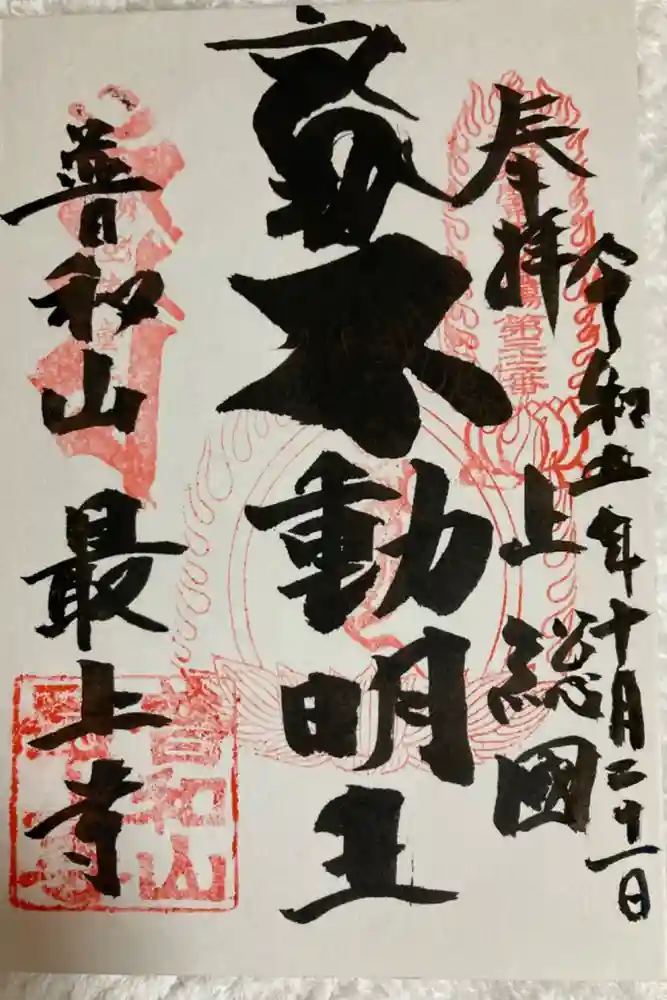 令和五年十月二十一日
奉拝 上総國
不動明王
普和山 最上寺
普和山
最上寺